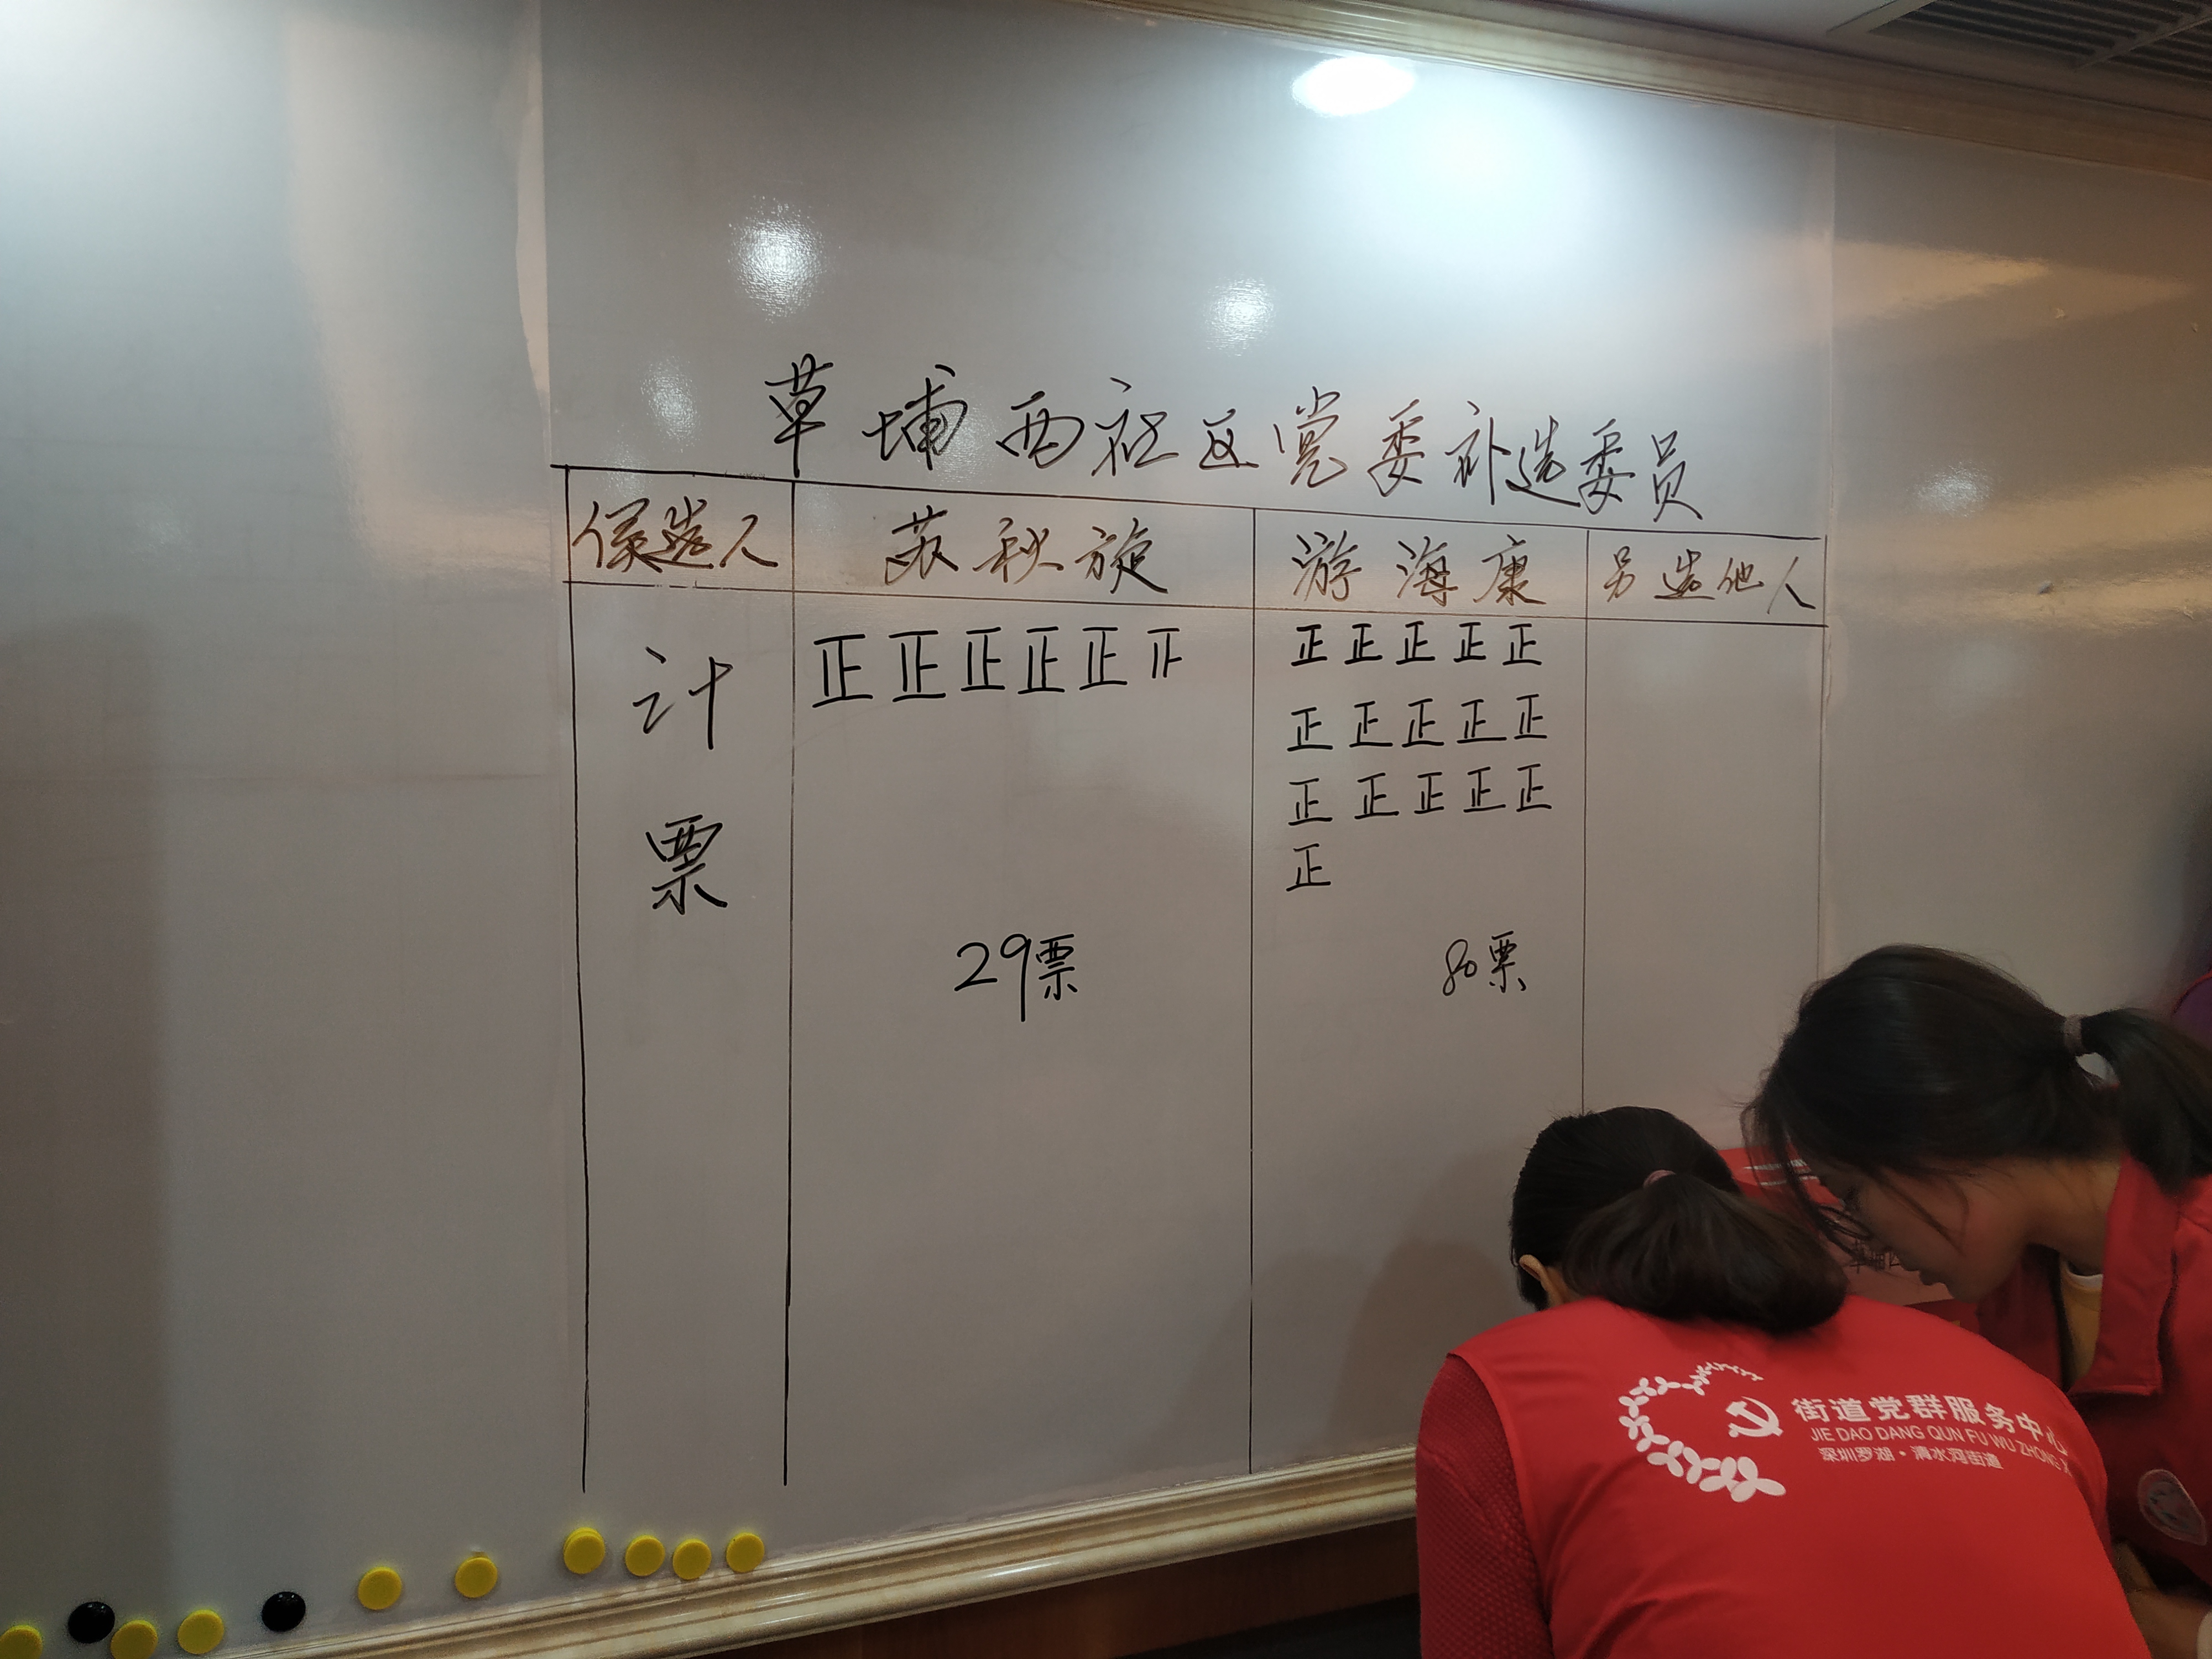 草埔西社区党委补选委员
候选人 苏秋旋 游海康 另选他人
计票
正正正正正
正正正正正
正正正正正
正正正正正
正
29票 80票
街道党群服务中心
JIE DAO DANG QUN FU WU ZHONG X
深圳罗湖·清水河街道